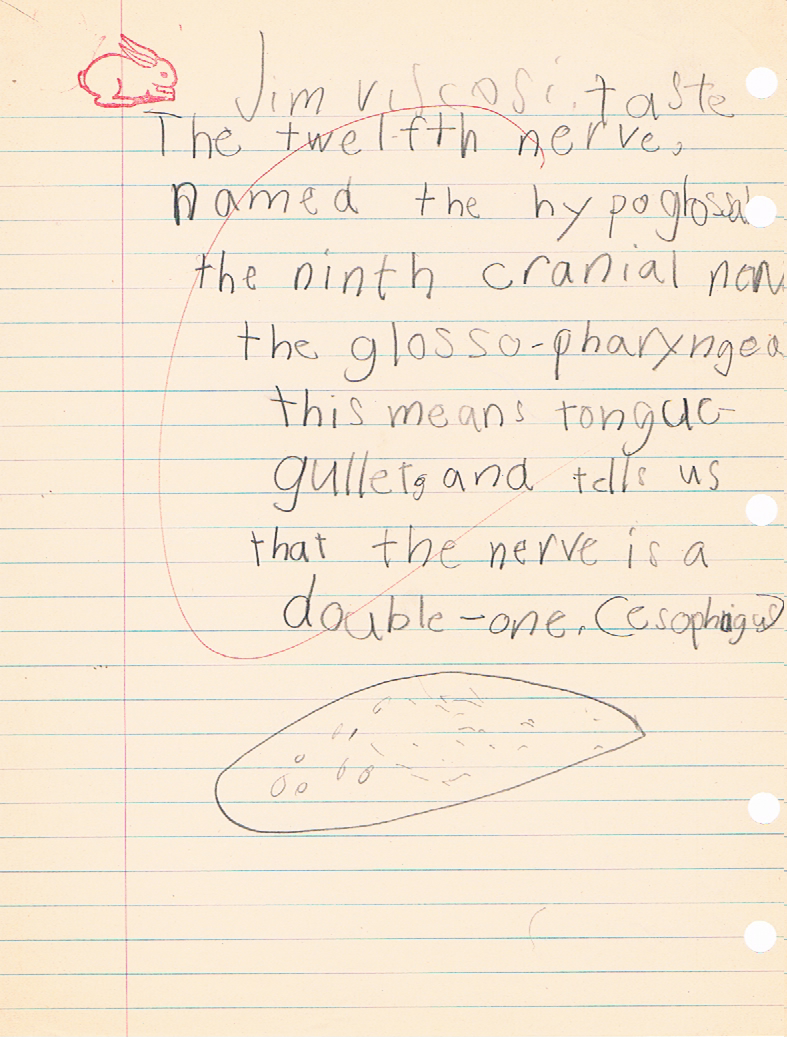 Jim Viscosi. taste
The twelfth nerve,
named the hypoglossal
the ninth cranial nerv
the glosso-pharyngea
this means tongue-
gullet, and tells us
that the nerve is a
double-one. (esophigus)